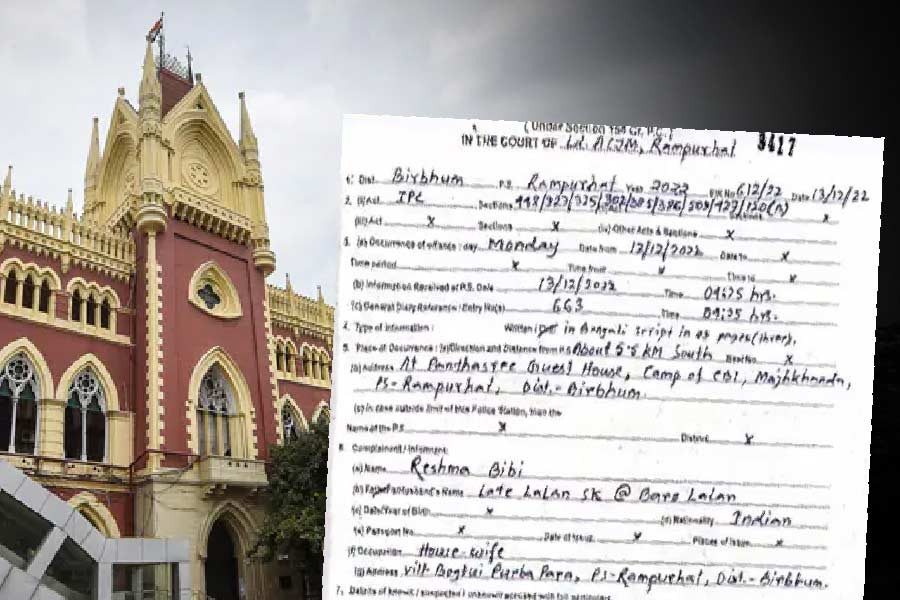 ( Under Section 154 Cr. P.C.)
IN THE COURT OF Ld. ACJM, Rampurhat
1. Dist. Birbhum P.S. Rampurhat Year 2022 FIR No 612/22 Date 13/12/22
2. (i) Act IPC Sections 448/323/325/302/385/386/509/427/120(B)
(ii) Act x Sections x (iv) Other Acts & Sections x
3. (a) Occurrence of offence : day Monday Date from 12/12/2022 Date to x
Time period x Time from x Time to x
(b) Information Received at P.S. Date 13/12/2022 Time 09:25 hrs.
(c) General Diary Reference : Entry No(s) 663 Time 09:25 hrs.
4. Type of information : Written in Bengali script in 03 pages (three).
5. Place of Occurrence : (a) Direction and Distance from P.S About 5.5 KM South Beat No. x
(b) Address At Panthasree Guest House, Camp of CBI,
PS- Rampurhat, Dist.- Birbhum.
(c) In case outside limit of this Police Station, then the
Name of the P.S. x District x
6. Complainant / Informant:
(a) Name Reshma Bibi
(b) Father's/Husband's Name Late Lalan SK @ Baro Lalan
(c) Date/Year of Birth x (d) Nationality Indian
(e) Passport No. x Date of Issue x Place of Issue x
(f) Occupation House-wife
(g) Address Vill- Bogtui Purba Para, PS-Rampurhat, Dist.- Birbhum.
7. Details of known / suspected / unknown accused with full particulars